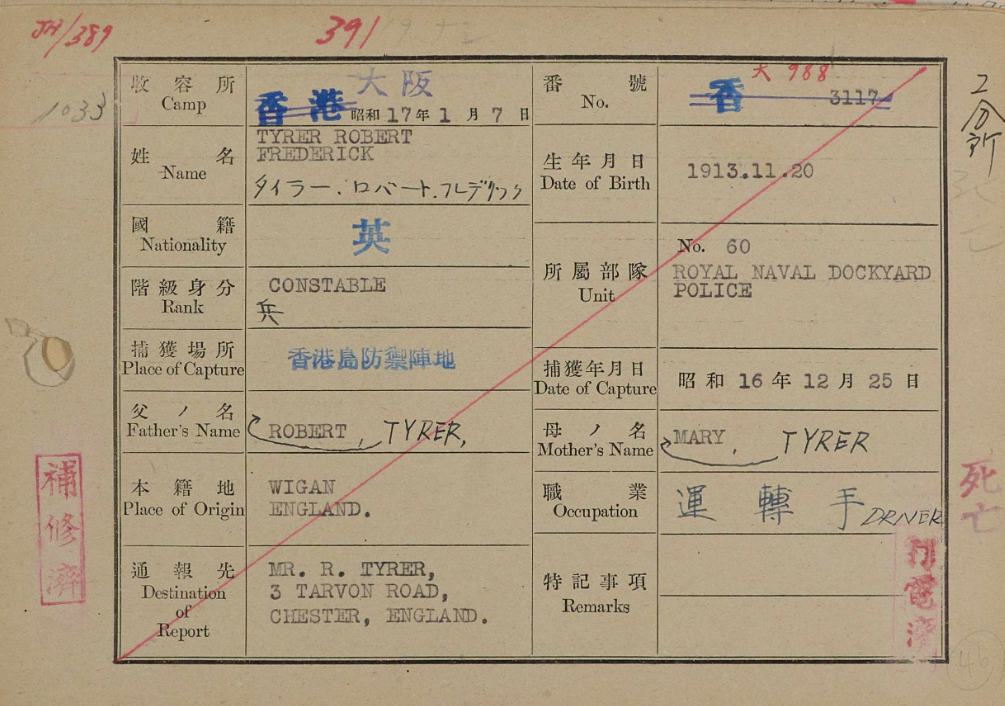 JH/389
391
1033
收容所
Camp
大阪
香港 昭和17年1月7日
番號
No.
大 988
香 3117
2分所
姓名
Name
TYRER ROBERT
FREDERICK
タイラー.ロバート.フレデリック
生年月日
Date of Birth
1913.11.20
國籍
Nationality
英
所屬部隊
Unit
No. 60
ROYAL NAVAL DOCKYARD
POLICE
階級身分
Rank
CONSTABLE
兵
捕獲場所
Place of Capture
香港島防禦陣地
捕獲年月日
Date of Capture
昭和16年12月25日
父ノ名
Father's Name
ROBERT, TYRER,
母ノ名
Mother's Name
MARY, TYRER
本籍地
Place of Origin
WIGAN
ENGLAND.
職業
Occupation
運轉手 DRIVER
通報先
Destination
of
Report
MR. R. TYRER,
3 TARVON ROAD,
CHESTER, ENGLAND.
特記事項
Remarks
補修濟
死亡
電濟
46